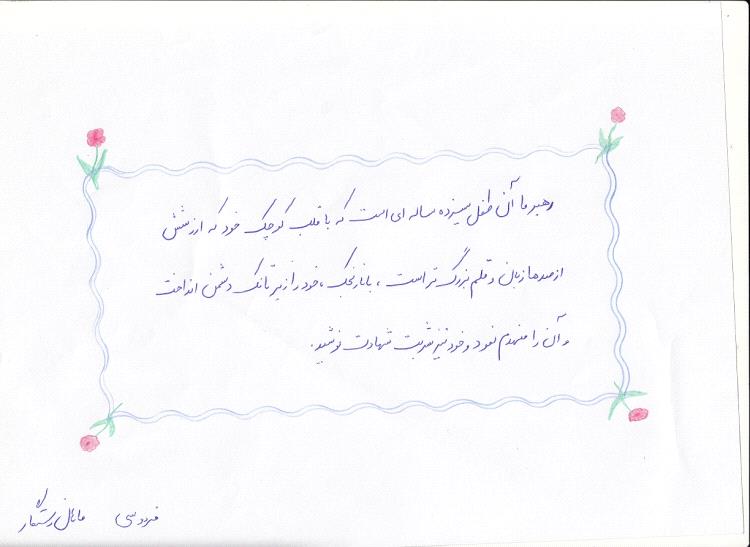 رهبر ما آن طفل سیزده ساله ای است که با قلب کوچک خود که ارزشش
از صدها زبان و قلم بزرگ تر است ، با نارنجک ، خود را زیر تانک دشمن انداخت
و آن را منهدم نمود و خود نیز شربت شهادت نوشید.
فردوسی ماهان رستگار